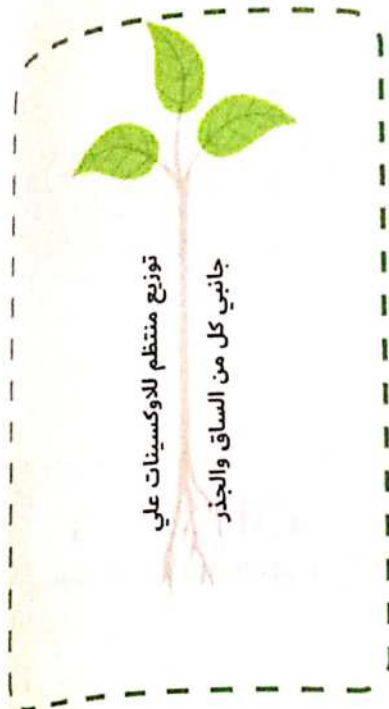 توزيع منتظم للاوكسينات علي
جانبي كل من الساق والجذر